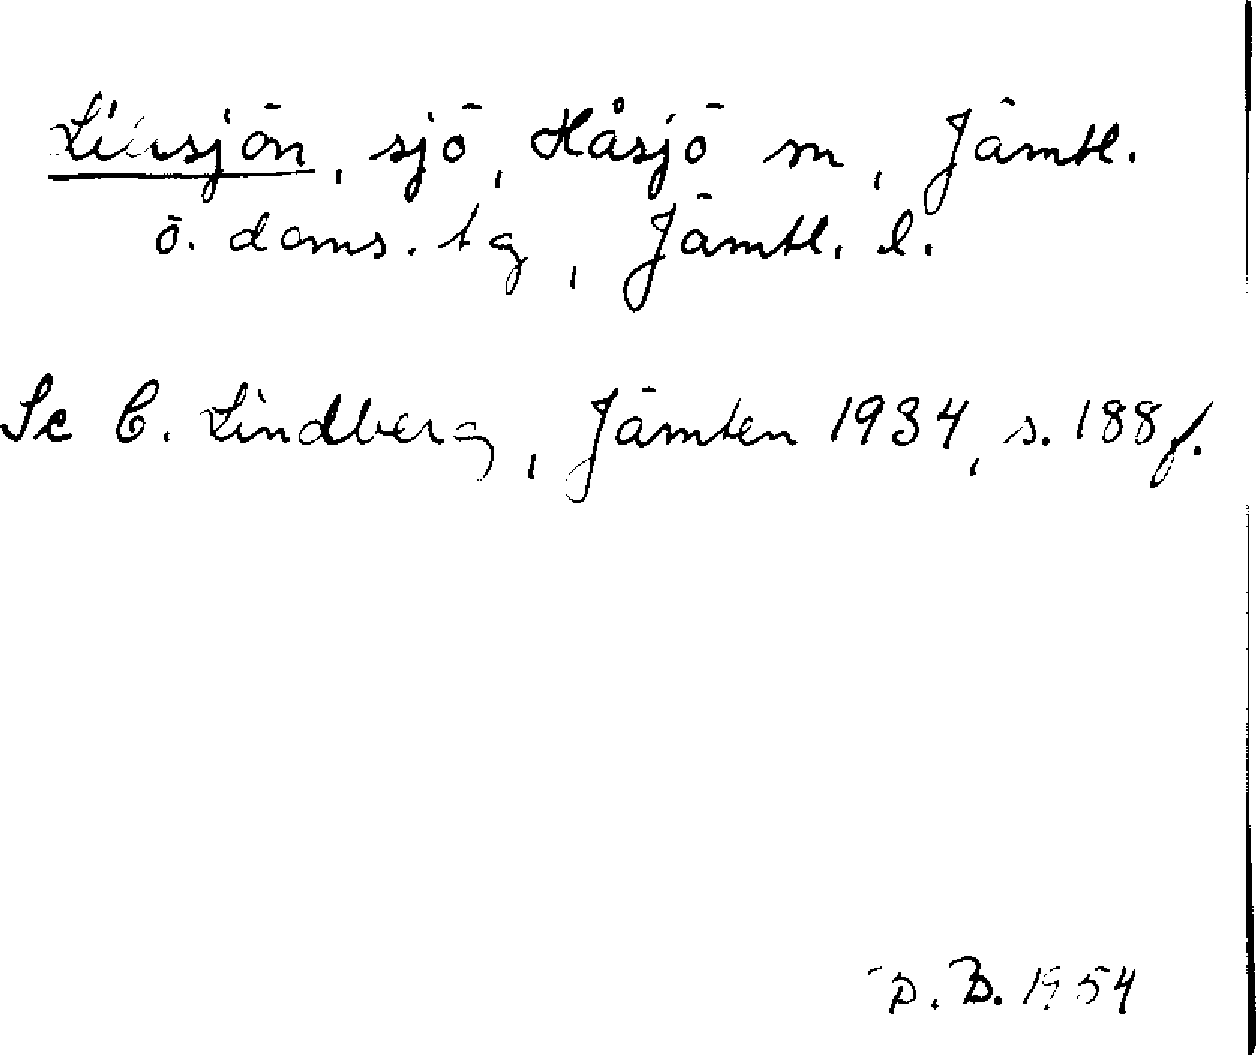 sjö, Håsjö sn, Jämtl.
ö. doms. tg, Jämtl. l.
Se C. Lindberg, Jämten 1934, s. 188 f.
B. 1954